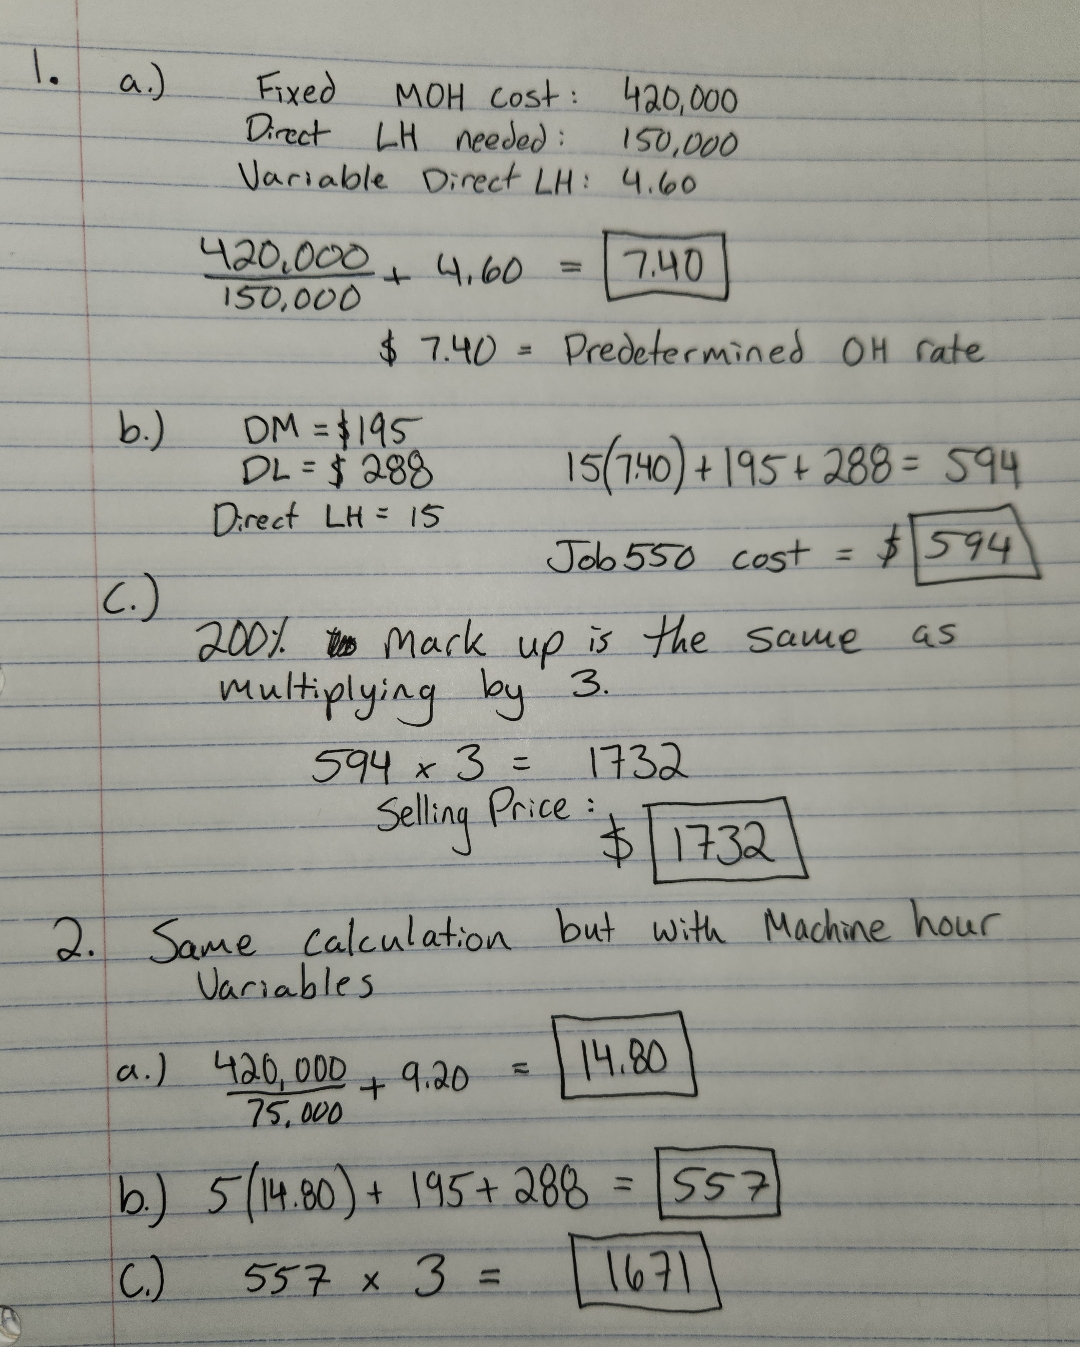 1. a.) Fixed MOH cost: 420,000
Direct LH needed: 150,000
Variable Direct LH: 4.60
420,000
150,000
+ 4.60 = 7.40
$ 7.40 = Predetermined OH rate
b.) DM = $195
DL = $ 288
Direct LH = 15
15(7.40) + 195 + 288 = 594
Job 550 cost = $ 594
C.)
200% Mark up is the same as
multiplying by 3.
594 x 3 = 1732
Selling Price :
$ 1732
2. Same Calculation but with Machine hour
Variables
a.) 420,000
75,000
+ 9.20 = 14.80
b.) 5(14.80) + 195 + 288 = 557
C.) 557 x 3 = 1671